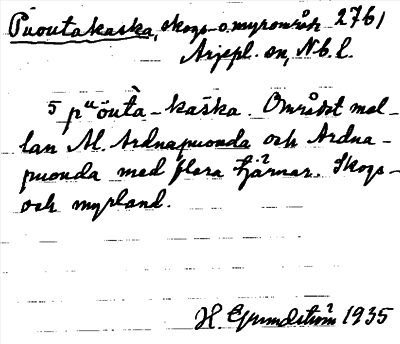 Puoutakaska, skogs- o. myrområde 2761
Arjepl. sn, Nb. l.
5 pᵘòutà-kaska. Området mel-
lan M. Ardnapuonda och Ardna-
puonda med flera tjärnar. Skogs-
och myrland.
H. Grundström 1935